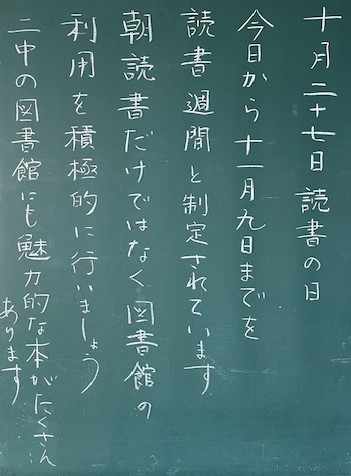 十月二十七日 読書の日
今日から十一月九日までを
読書週間と制定されています
朝読書だけではなく図書館の
利用を積極的に行いましょう
二中の図書館にも魅力的な本がたくさん
あります